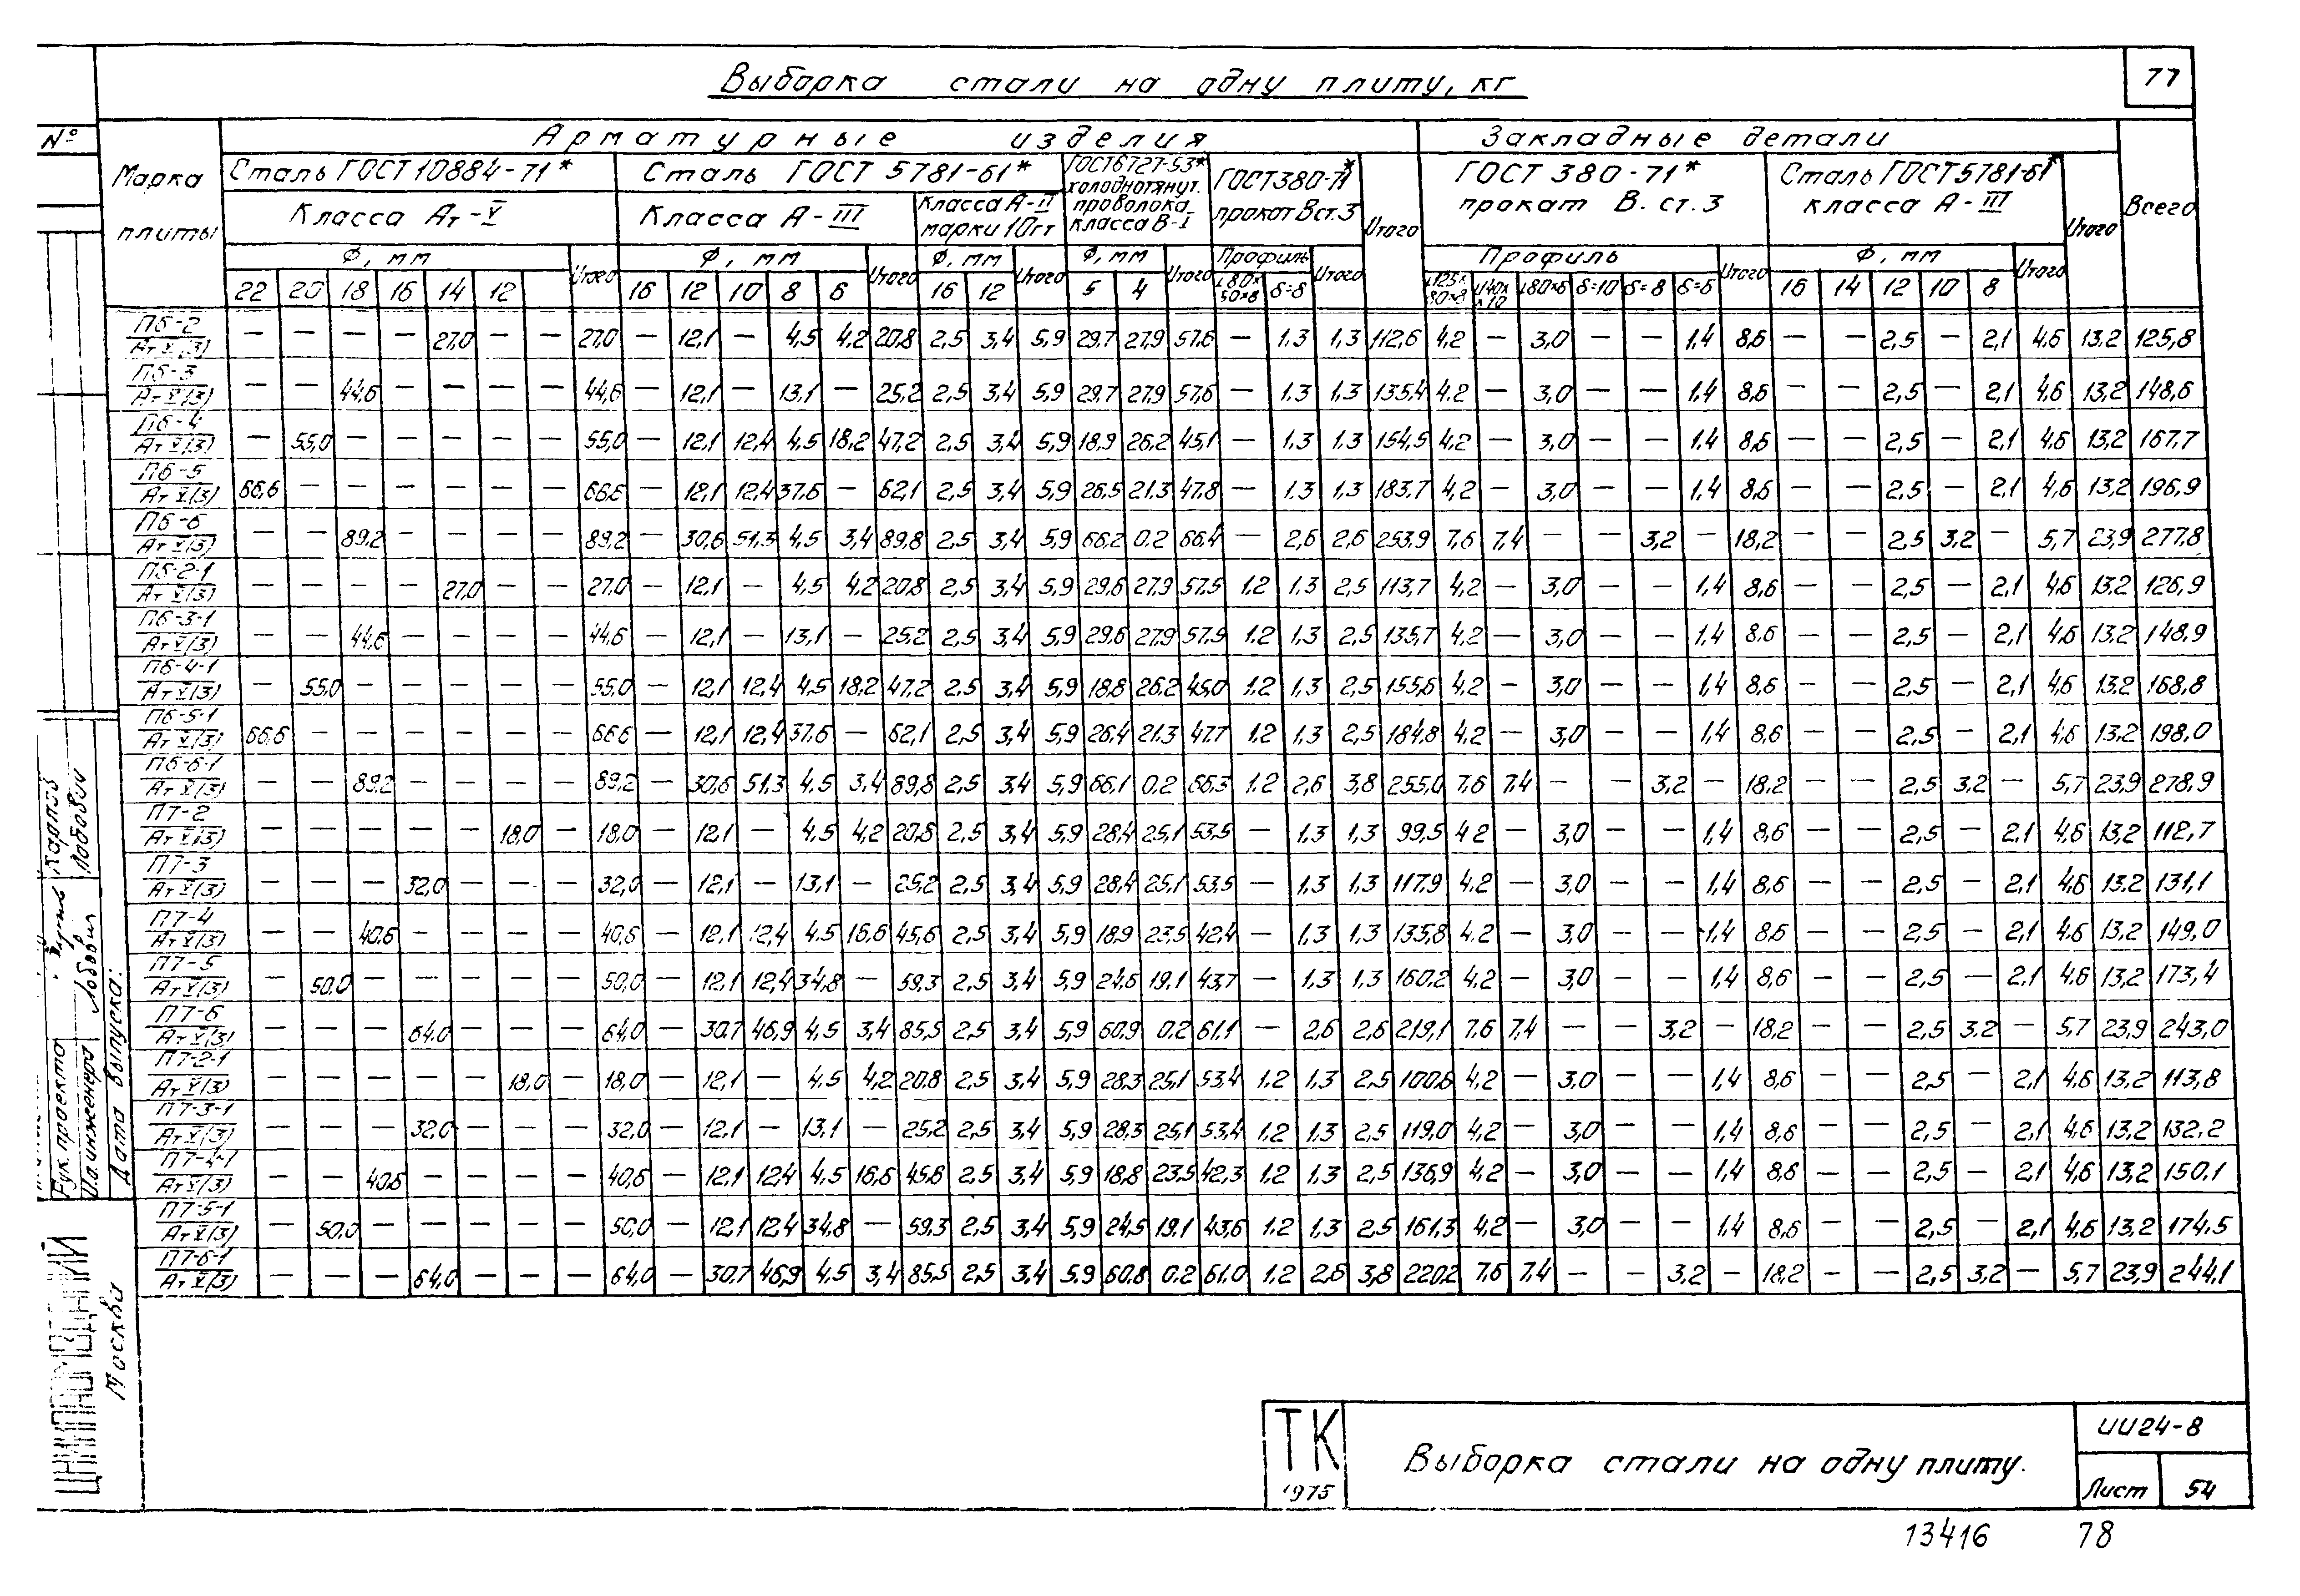 Выборка стали на одну плиту, кг
77
№
Марка плиты
Арматурные изделия
Закладные детали
Всего
Сталь ГОСТ 10884-71*
Сталь ГОСТ 5781-61*
ГОСТ 6727-53* холоднотянут. проволока класса В-I
ГОСТ 380-71* прокат Вст.3
Итого
ГОСТ 380-71* прокат В. ст. 3
Сталь ГОСТ 5781-61* класса А-III
Итого
Класса Ат-V
Класса А-III
Класса А-II марки 10ГТ
Ф, мм
Итого
Ф, мм
Итого
Ф, мм
Итого
Ф, мм
Итого
Профиль
Итого
Профиль
Итого
Ф, мм
Итого
22 20 18 16 14 12 16 12 10 8 6 16 12 5 4 L80×50×8 δ=8 L125×80×8 L140××10 L80×6 δ=10 δ=8 δ=6 16 14 12 10 8
П6-2 Ат V(3) — — — — 27,0 — 27,0 — 12,1 — 4,5 4,2 20,8 2,5 3,4 5,9 29,7 27,9 57,6 — 1,3 1,3 112,6 4,2 — 3,0 — — 1,4 8,6 — — 2,5 — 2,1 4,6 13,2 125,8
П6-3 Ат V(3) — — 44,6 — — — — 44,6 — 12,1 — 13,1 — 25,2 2,5 3,4 5,9 29,7 27,9 57,6 — 1,3 1,3 135,4 4,2 — 3,0 — — 1,4 8,6 — — 2,5 — 2,1 4,6 13,2 148,6
П6-4 Ат V(3) — 55,0 — — — — — 55,0 — 12,1 12,4 4,5 18,2 47,2 2,5 3,4 5,9 18,9 26,2 45,1 — 1,3 1,3 154,5 4,2 — 3,0 — — 1,4 8,6 — — 2,5 — 2,1 4,6 13,2 167,7
П6-5 Ат V(3) 66,6 — — — — — — 66,6 — 12,1 12,4 37,6 — 62,1 2,5 3,4 5,9 26,5 21,3 47,8 — 1,3 1,3 183,7 4,2 — 3,0 — — 1,4 8,6 — — 2,5 — 2,1 4,6 13,2 196,9
П6-6 Ат V(3) — — 89,2 — — — — 89,2 — 30,6 51,3 4,5 3,4 89,8 2,5 3,4 5,9 66,2 0,2 66,4 — 2,6 2,6 253,9 7,6 7,4 — — 3,2 — 18,2 — — 2,5 3,2 — 5,7 23,9 277,8
П6-2-1 Ат V(3) — — — — 27,0 — — 27,0 — 12,1 — 4,5 4,2 20,8 2,5 3,4 5,9 29,6 27,9 57,5 1,2 1,3 2,5 113,7 4,2 — 3,0 — — 1,4 8,6 — — 2,5 — 2,1 4,6 13,2 126,9
П6-3-1 Ат V(3) — — 44,6 — — — — 44,6 — 12,1 — 13,1 — 25,2 2,5 3,4 5,9 29,6 27,9 57,9 1,2 1,3 2,5 135,7 4,2 — 3,0 — — 1,4 8,6 — — 2,5 — 2,1 4,6 13,2 148,9
П6-4-1 Ат V(3) — 55,0 — — — — — 55,0 — 12,1 12,4 4,5 18,2 47,2 2,5 3,4 5,9 18,8 26,2 45,0 1,2 1,3 2,5 155,6 4,2 — 3,0 — — 1,4 8,6 — — 2,5 — 2,1 4,6 13,2 168,8
П6-5-1 Ат V(3) 66,6 — — — — — — 66,6 — 12,1 12,4 37,6 — 62,1 2,5 3,4 5,9 26,4 21,3 47,7 1,2 1,3 2,5 184,8 4,2 — 3,0 — — 1,4 8,6 — — 2,5 — 2,1 4,6 13,2 198,0
П6-6-1 Ат V(3) — — 89,2 — — — — 89,2 — 30,6 51,3 4,5 3,4 89,8 2,5 3,4 5,9 66,1 0,2 66,3 1,2 2,6 3,8 255,0 7,6 7,4 — — 3,2 — 18,2 — — 2,5 3,2 — 5,7 23,9 278,9
П7-2 Ат V(3) — — — — — 18,0 — 18,0 — 12,1 — 4,5 4,2 20,8 2,5 3,4 5,9 28,4 25,1 53,5 — 1,3 1,3 99,5 4,2 — 3,0 — — 1,4 8,6 — — 2,5 — 2,1 4,6 13,2 112,7
П7-3 Ат V(3) — — — 32,0 — — — 32,0 — 12,1 — 13,1 — 25,2 2,5 3,4 5,9 28,4 25,1 53,5 — 1,3 1,3 117,9 4,2 — 3,0 — — 1,4 8,6 — — 2,5 — 2,1 4,6 13,2 131,1
П7-4 Ат V(3) — — 40,6 — — — — 40,6 — 12,1 12,4 4,5 16,6 45,6 2,5 3,4 5,9 18,9 23,5 42,4 — 1,3 1,3 135,8 4,2 — 3,0 — — 1,4 8,6 — — 2,5 — 2,1 4,6 13,2 149,0
П7-5 Ат V(3) — 50,0 — — — — — 50,0 — 12,1 12,4 34,8 — 59,3 2,5 3,4 5,9 24,6 19,1 43,7 — 1,3 1,3 160,2 4,2 — 3,0 — — 1,4 8,6 — — 2,5 — 2,1 4,6 13,2 173,4
П7-6 Ат V(3) — — — 64,0 — — — 64,0 — 30,7 46,9 4,5 3,4 85,5 2,5 3,4 5,9 60,9 0,2 61,1 — 2,6 2,6 219,1 7,6 7,4 — — 3,2 — 18,2 — — 2,5 3,2 — 5,7 23,9 243,0
П7-2-1 Ат V(3) — — — — — 18,0 — 18,0 — 12,1 — 4,5 4,2 20,8 2,5 3,4 5,9 28,3 25,1 53,4 1,2 1,3 2,5 100,6 4,2 — 3,0 — — 1,4 8,6 — — 2,5 — 2,1 4,6 13,2 113,8
П7-3-1 Ат V(3) — — — 32,0 — — — 32,0 — 12,1 — 13,1 — 25,2 2,5 3,4 5,9 28,3 25,1 53,4 1,2 1,3 2,5 119,0 4,2 — 3,0 — — 1,4 8,6 — — 2,5 — 2,1 4,6 13,2 132,2
П7-4-1 Ат V(3) — — 40,6 — — — — 40,6 — 12,1 12,4 4,5 16,6 45,6 2,5 3,4 5,9 18,8 23,5 42,3 1,2 1,3 2,5 136,9 4,2 — 3,0 — — 1,4 8,6 — — 2,5 — 2,1 4,6 13,2 150,1
П7-5-1 Ат V(3) — 50,0 — — — — — 50,0 — 12,1 12,4 34,8 — 59,3 2,5 3,4 5,9 24,5 19,1 43,6 1,2 1,3 2,5 161,3 4,2 — 3,0 — — 1,4 8,6 — — 2,5 — 2,1 4,6 13,2 174,5
П7-6-1 Ат V(3) — — — 64,0 — — — 64,0 — 30,7 46,9 4,5 3,4 85,5 2,5 3,4 5,9 60,8 0,2 61,0 1,2 2,6 3,8 220,2 7,6 7,4 — — 3,2 — 18,2 — — 2,5 3,2 — 5,7 23,9 244,1
Рук. проекта Карпов
Ст. инженер Лобович Лобович
Дата выпуска:
ЦНИИПРОМЗДАНИЙ
Москва
ТК
1975
Выборка стали на одну плиту.
ИИ24-8
Лист 54
13416 78